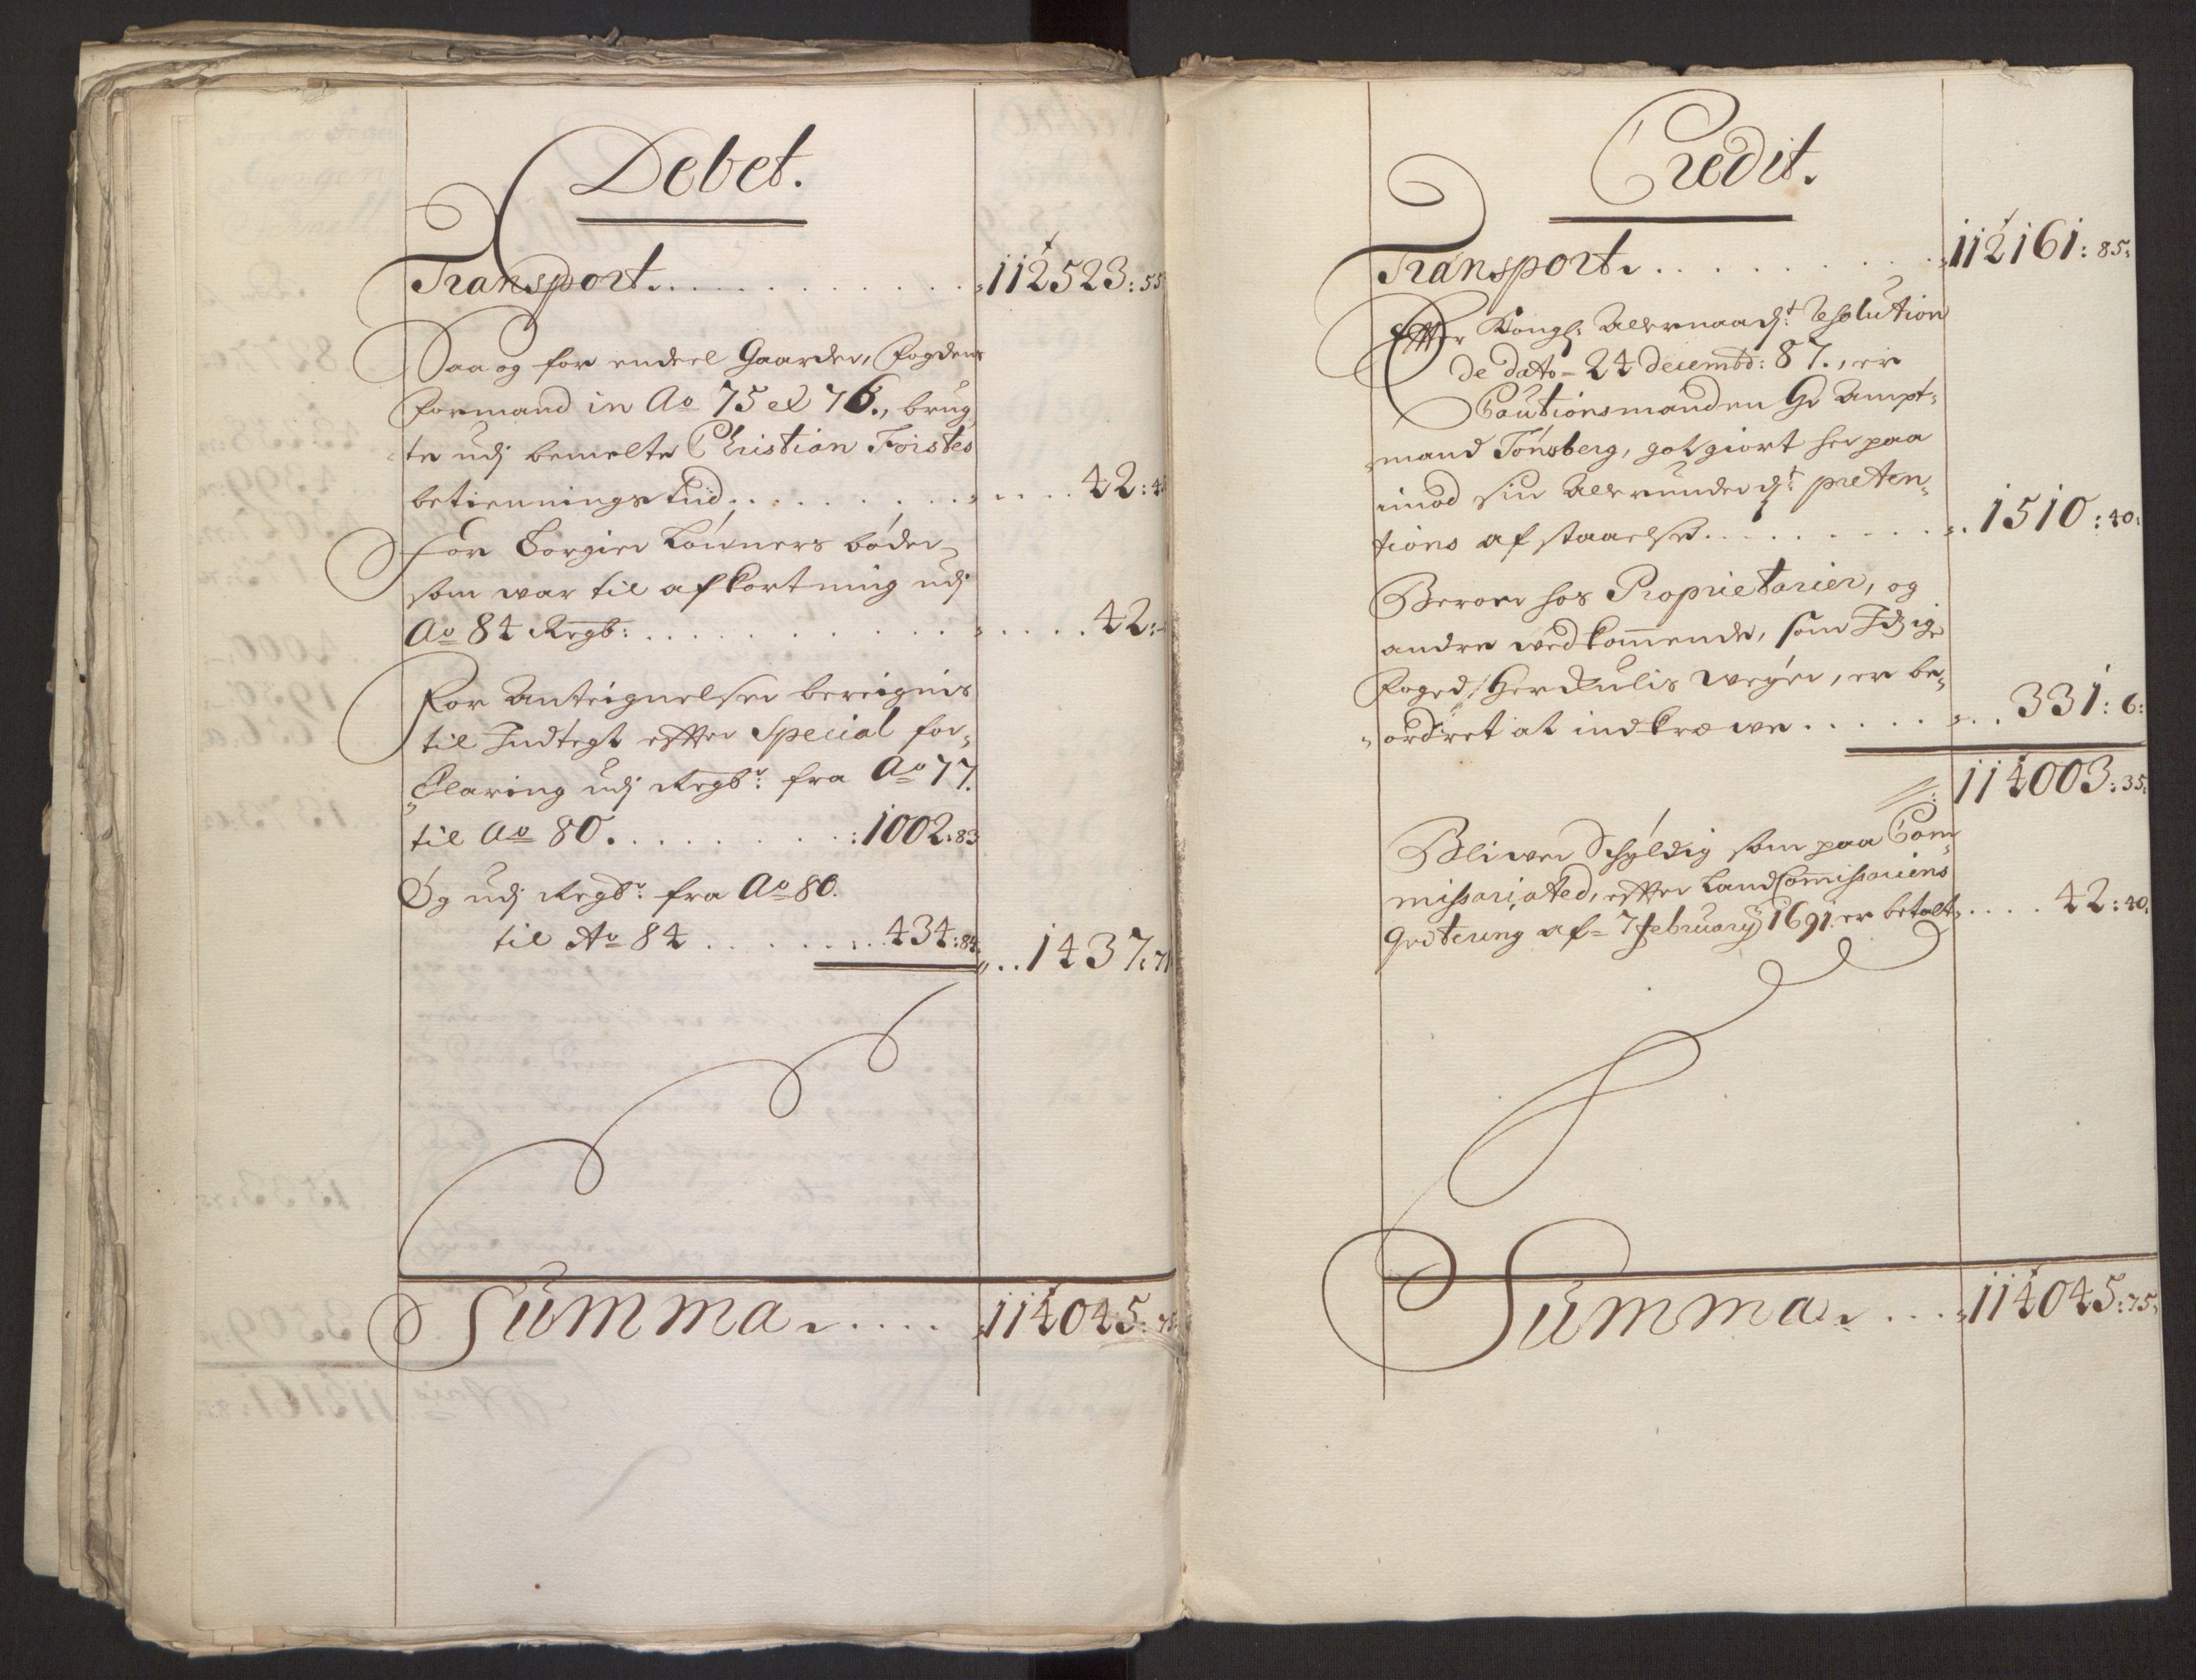 Debet.
Transport. . . . . . . . . . . . 112523: 55
Saa og for endeel Gaarder, fogdens
formand in Ao 75 et 76., brug¸
te udj bemelte Christian Foistes
betienningstid . . . . . . . . . . . . . 42: 4
For Borgier Lønners bøder¸
som war til afkortning udj
Ao 84 Regb: . . . . . . . . . . . . . . . 42:
For Anteignelser bereignis
til Indtegt effter Special for¸
Claring udj Regb: fra Ao 77.
til Ao 80 . . . . . . . . : 1002: 83
Og udj Regb: fra Ao 80.
til Ao 84 . . . . . . . . 434: 84 . . 1437: 71
Summa . . . . 114045: 75
Credit.
Transport . . . . . . . . . . 112161: 85:
Effter Kongl: Allernaadst: Resolution
de dato 24 decembr: 87., er
Cautionsmanden Hr Ampt¸
mand Tønsberg, got giort her paa
imod sin Allerunderdst: præten¸
tions afstaaelse . . . . . . . . . . 1510: 40:
Beroer hos Proprietarier, og
andre wedkommende, som Itzige
foged Herculis Weyer, er be¸
ordret at indkræwe . . . . . . . . 331: 6:
114003: 35:
Bliwer Schyldig som paa Com¸
missariated, effter LandCommissariens
Qvitering af 7 february 1691 er betalt . . . . 42: 40:
Summa . . . 114045: 75: